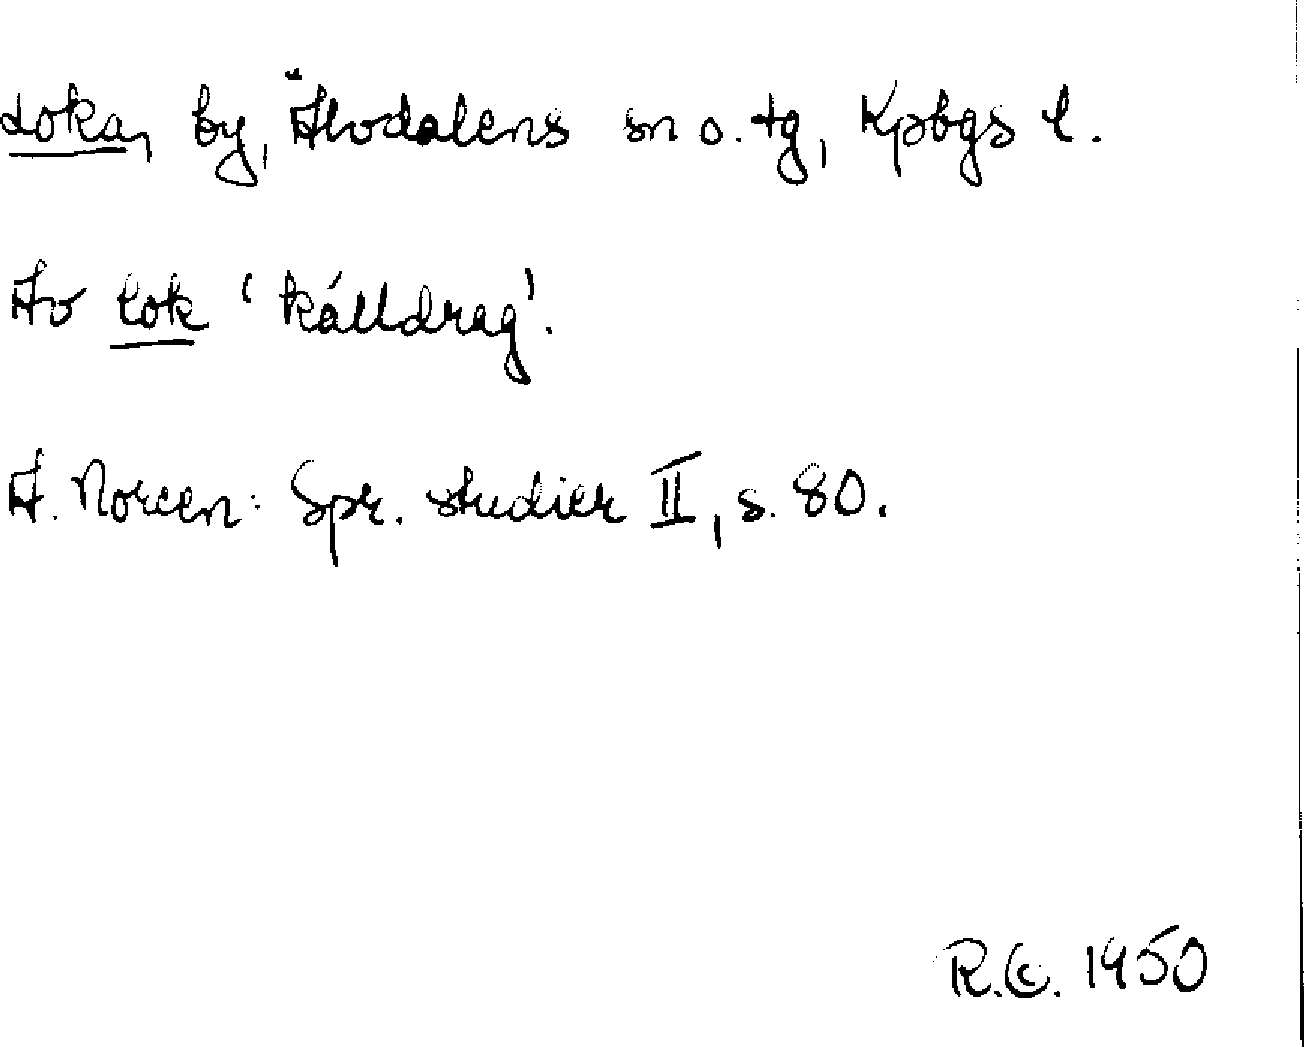 Loka, by, Älvdalens sn o. tg, Kpbgs l.
Av lok 'källdrag'.
A. Noreen: Spr. studier II, s. 80.
1950